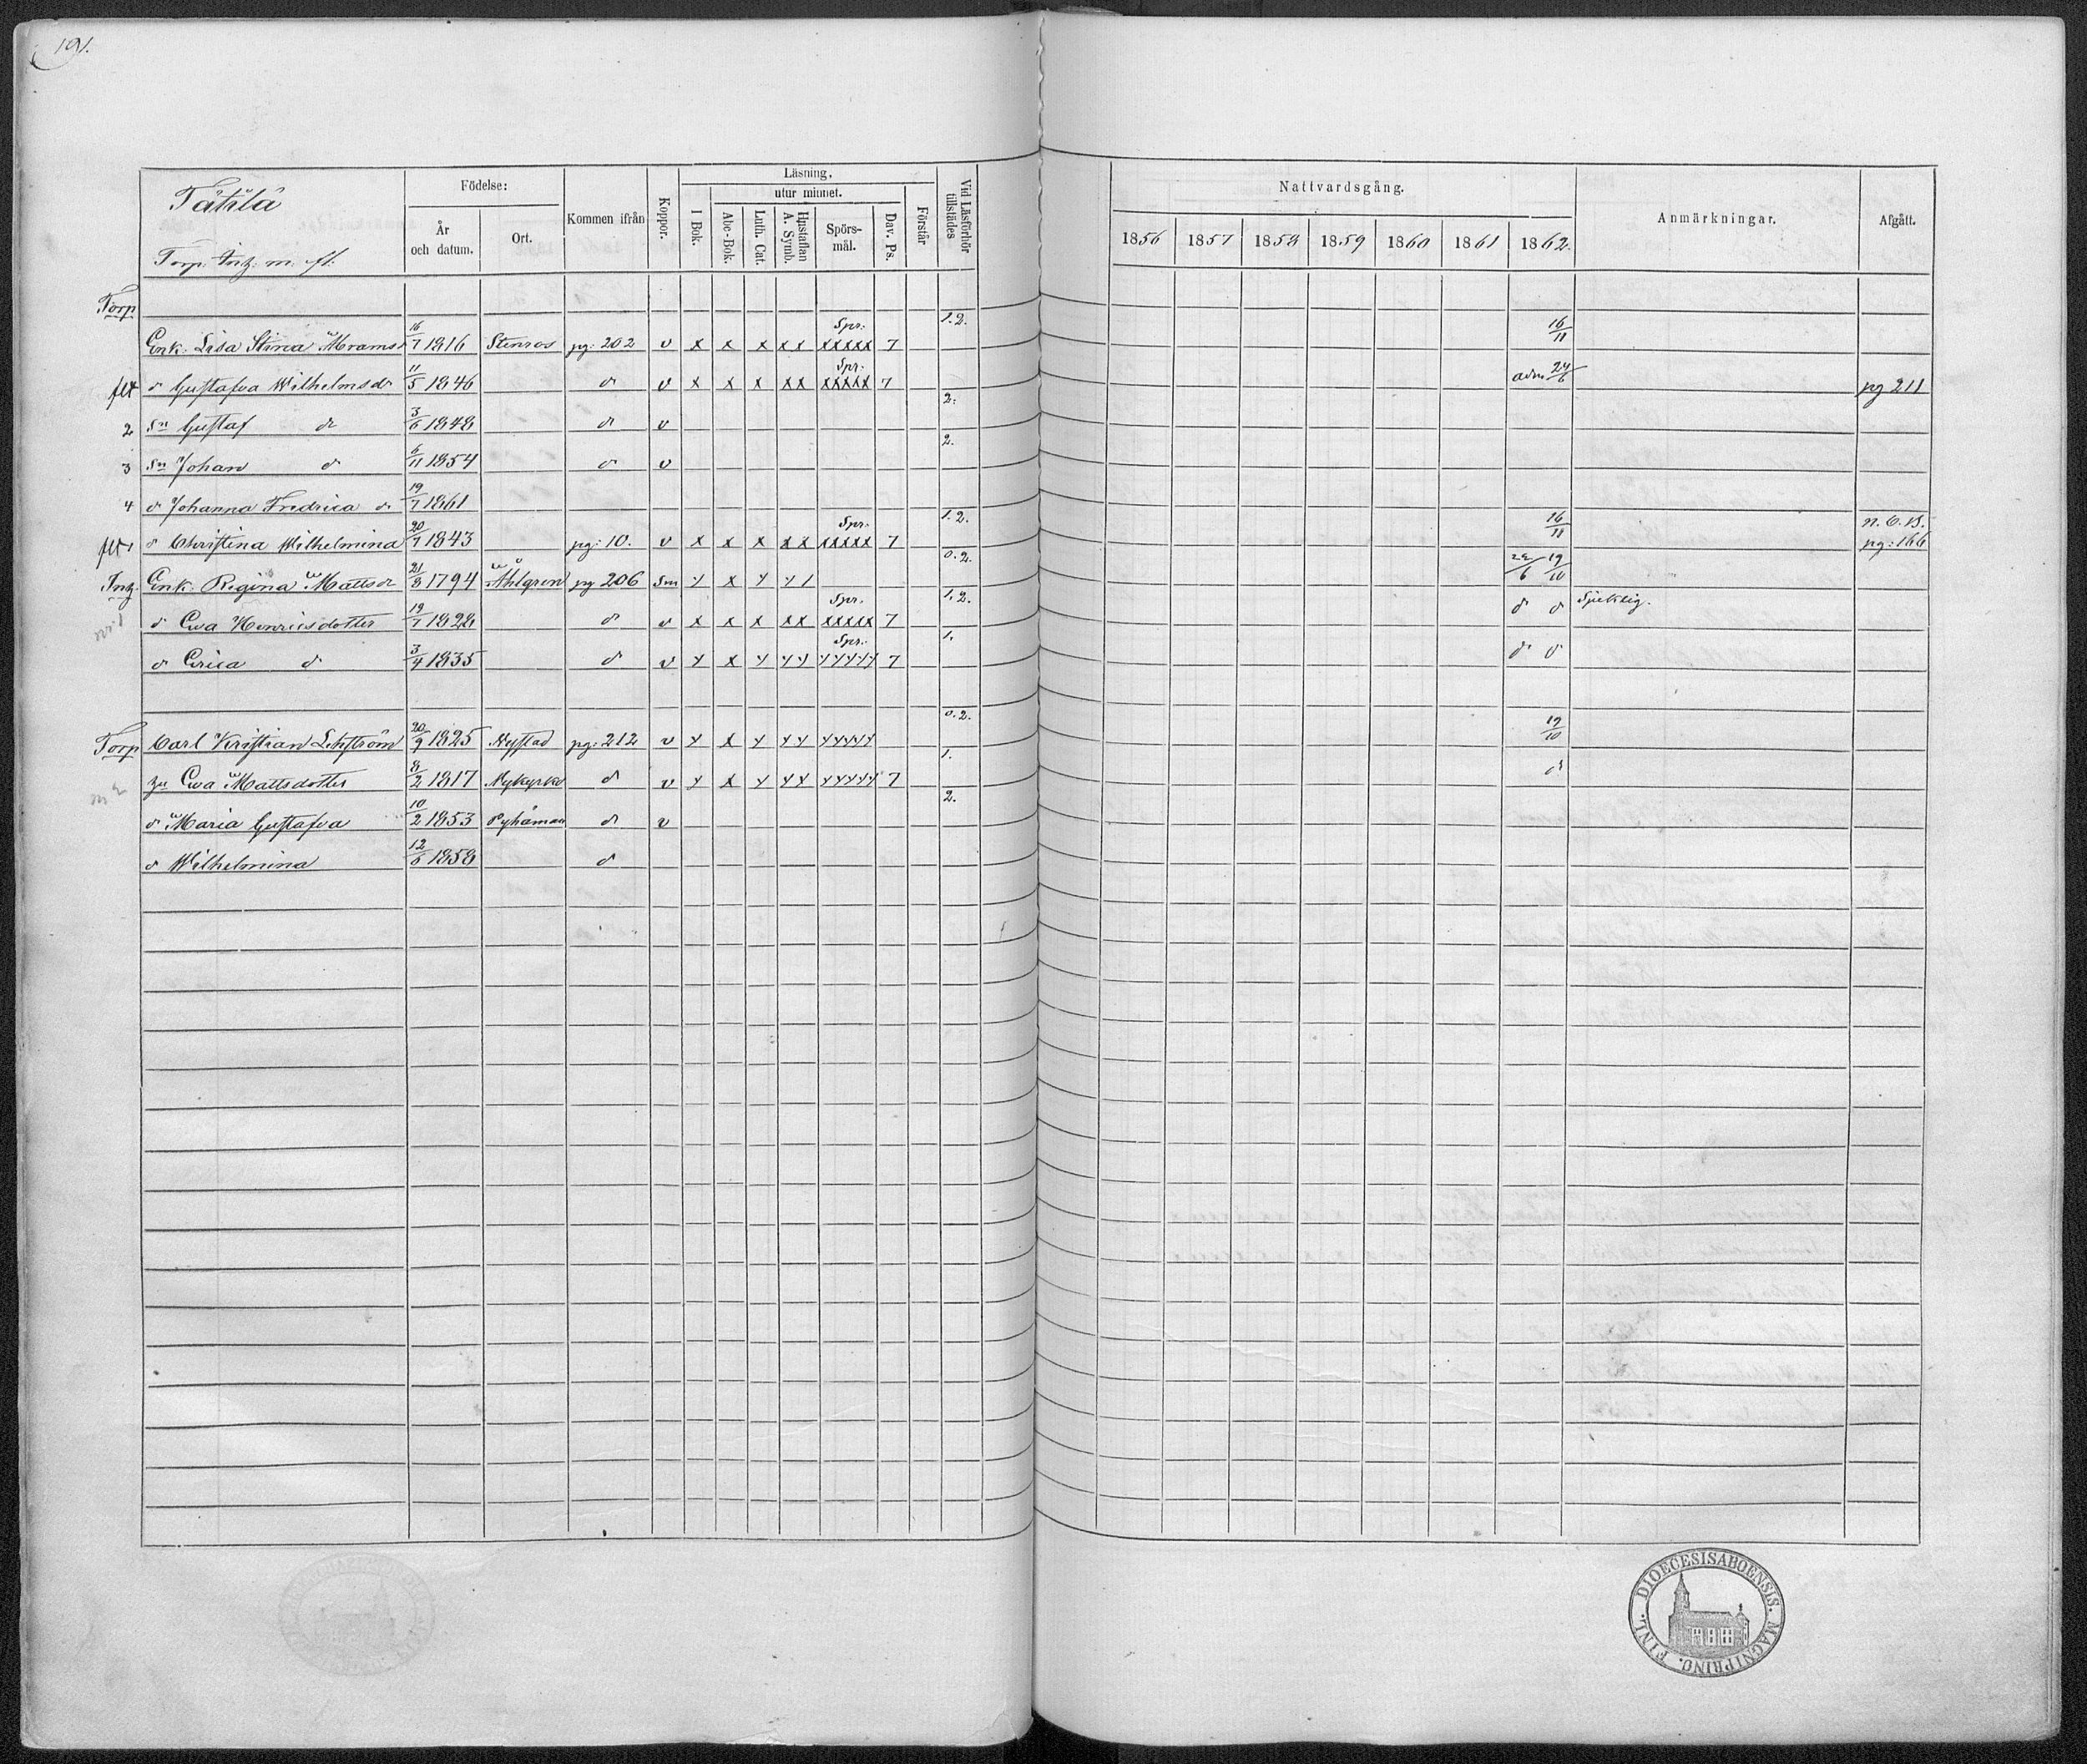 191.
Tähtä
Torp. Intg. m. fl.
Födelse:
År och datum.
Ort.
Kommen ifrån
Koppor.
Läsning,
I Bok.
utur minnet.
Abc-Bok.
Luth. Cat.
Hustaflan A. Symb.
Spörs-mål.
Dav. Ps.
Förstår
Vid Läsförhör tillstädes
Nattvardsgång.
1856 1857 1858 1859 1860 1861 1862.
Anmärkningar.
Afgått.
Torp
Enk. Lisa Stina 16/7 1816 Stenros pg: 202 v x x x xx Spr. xxxxx 7 1.2. 16/11
d Gustafva Wilhelmsdr 11/5 1846 d v x x x xx Spr. xxxxx 7 adm 24/6 pg 211
2 Sn Gustaf d 3/6 1848 d v 2.
3 Sn Johan d 6/11 1854 d v 2.
4 d Johanna Fredrica d 19/7 1861
d Christina Wilhelmina 20/7 1843 pg: 10. v x x x xx Spr. xxxxx 7 1.2. 16/11 n. C. B. pg: 166
Intg. Enk. Regina Mattsdr 21/8 1794 Åhlgren pg 206 0.2. 19/10
d Ewa Henricsdotter 19/7 1828 d v x x x xx Spr. xxxxx 7 1.2. d d Sjuklig.
d Erica d 3/4 1835 d v Spr. 7 1. d d
Torp Carl Kristian 20/9 1825 Nystad pg: 212 v 0.2. 19/10
Ewa Mattsdotter 8/2 1817 Nykyrko d v 7 1. d
d Maria Gustafva 10/2 1853 Pyhämaa d v 2.
d Wilhelmina 12/6 1858 d
DIOECESIS ABOENSIS. MAGNI PRINC. FINL.